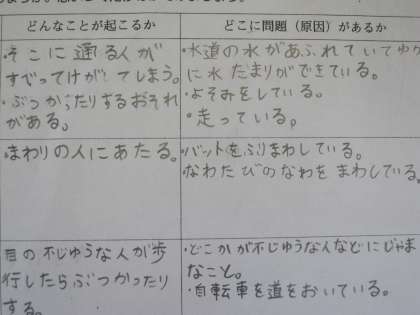 どんなことが起こるか
どこに問題（原因）があるか
・そこに通る人が
すべってけがしてしまう。
・ぶつかったりするおそれ
がある。
・水道の水があふれていてゆか
に水たまりができている。
・よそみをしている。
・走っている。
・まわりの人にあたる。
・バットをふりまわしている。
・なわたびのなわをまわしている。
目の不じゆうな人が歩
行したらぶつかったり
する。
・どこかが不じゆうな人などにじゃま
なこと。
・自転車を道をおいている。